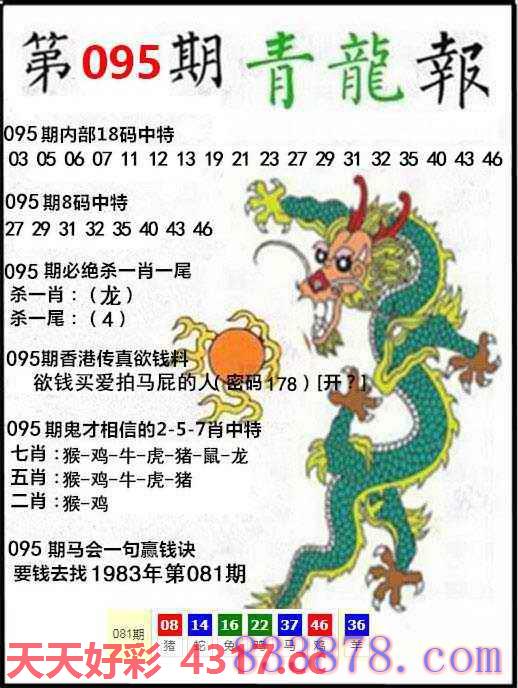 第095期青龍報
095期内部18码中特
03 05 06 07 11 12 13 19 21 23 27 29 31 32 35 40 43 46
095期8码中特
27 29 31 32 35 40 43 46
095 期必绝杀一肖一尾
杀一肖：（龙）
杀一尾：（4）
095期香港传真欲钱料
欲钱买爱拍马屁的人（密码178）[开？]
095期鬼才相信的2-5-7肖中特
七肖：猴-鸡-牛-虎-猪-鼠-龙
五肖：猴-鸡-牛-虎-猪
二肖：猴-鸡
095 期马会一句赢钱诀
要钱去找1983年第081期
081期 08 14 16 22 37 46 36
猪 蛇 兔 马 鸡 羊
天天好彩 4317.cc
833878.com